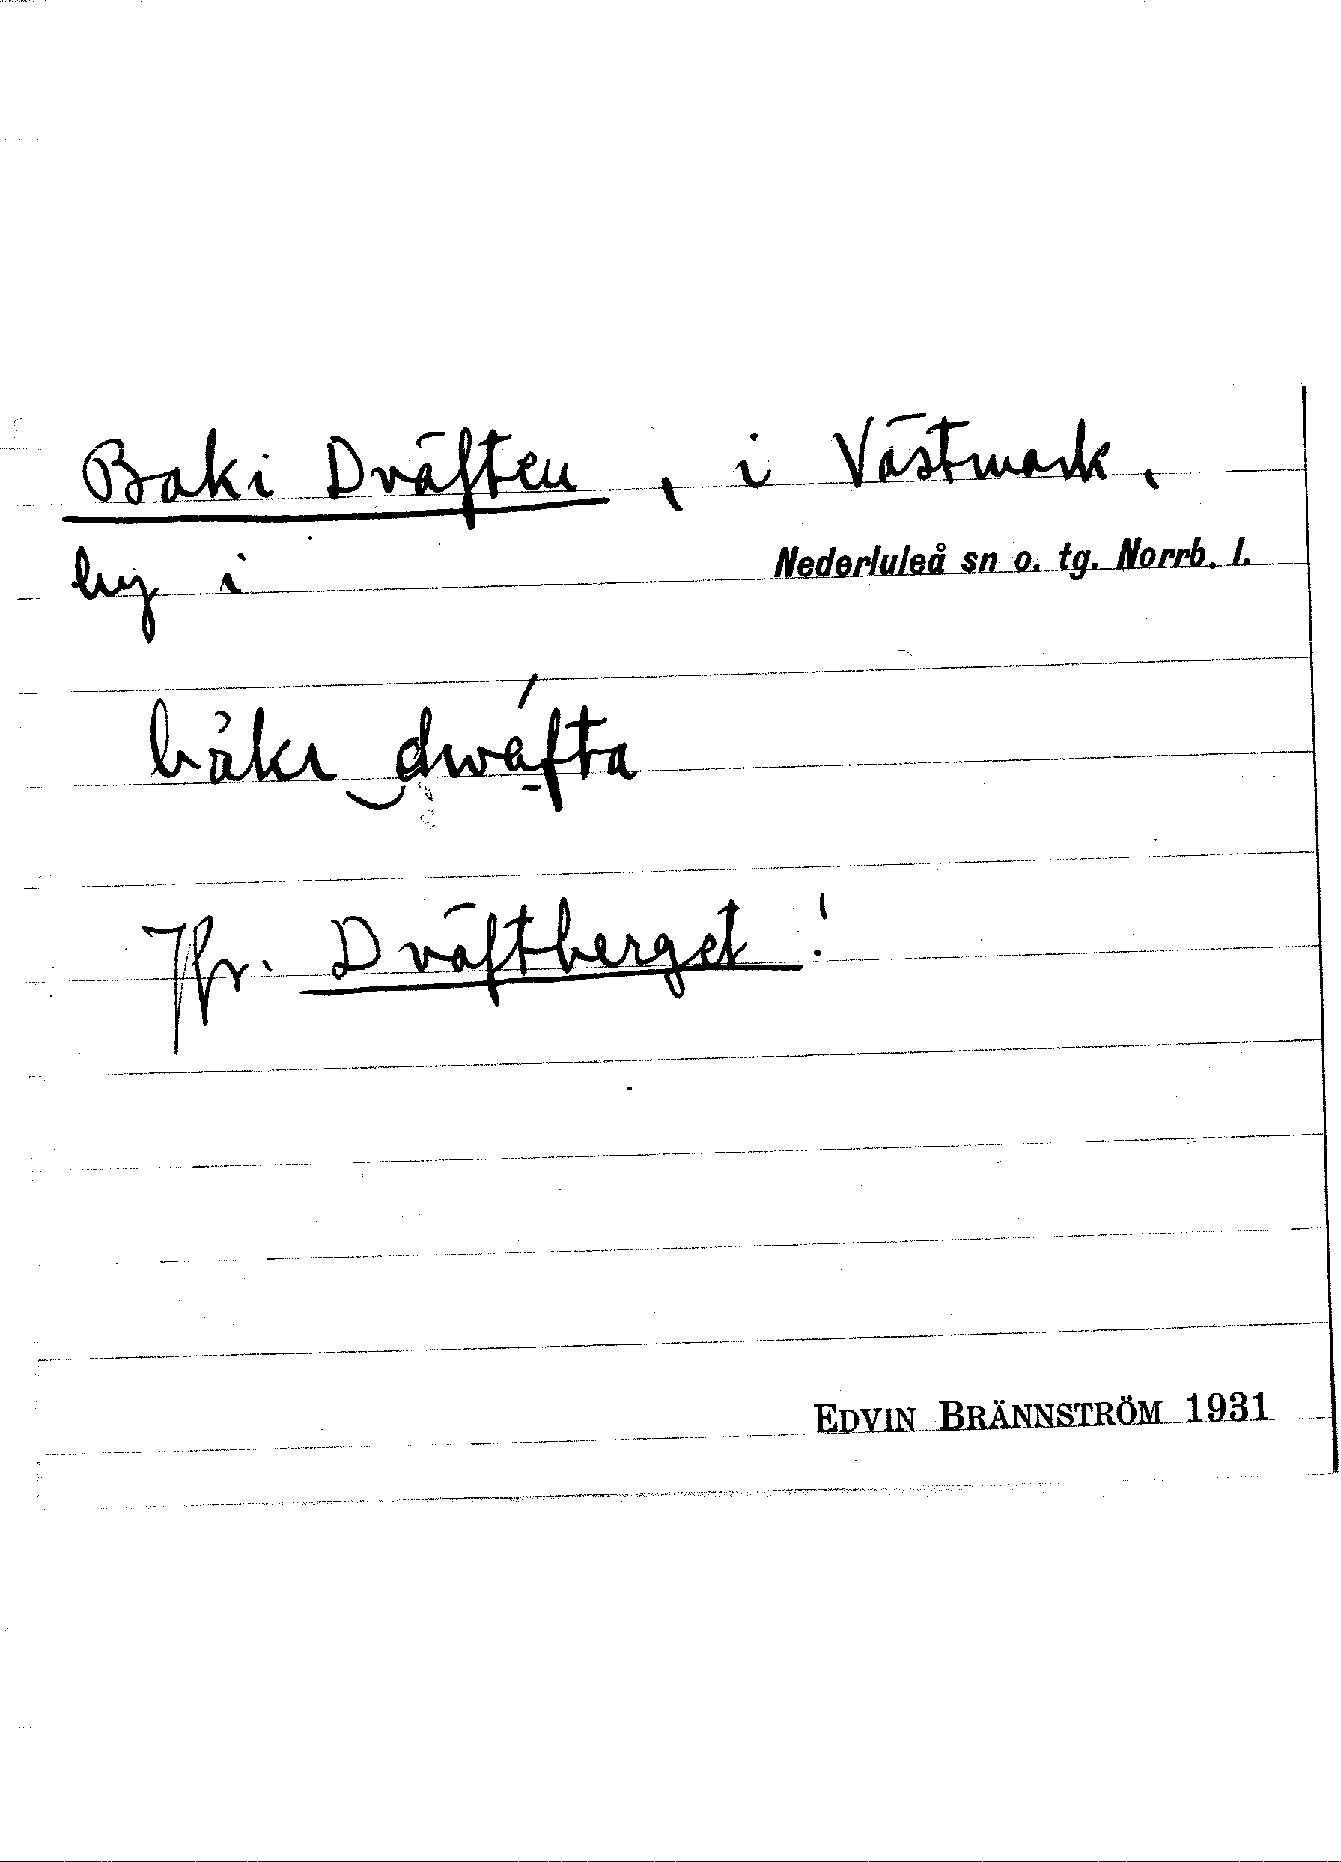 Baki Dväften, i Västmark,
by i Nederluleå sn o. tg. Norrb. l.
båkı dwäfta
Jfr. Dväftberget!
EDVIN BRÄNNSTRÖM 1931